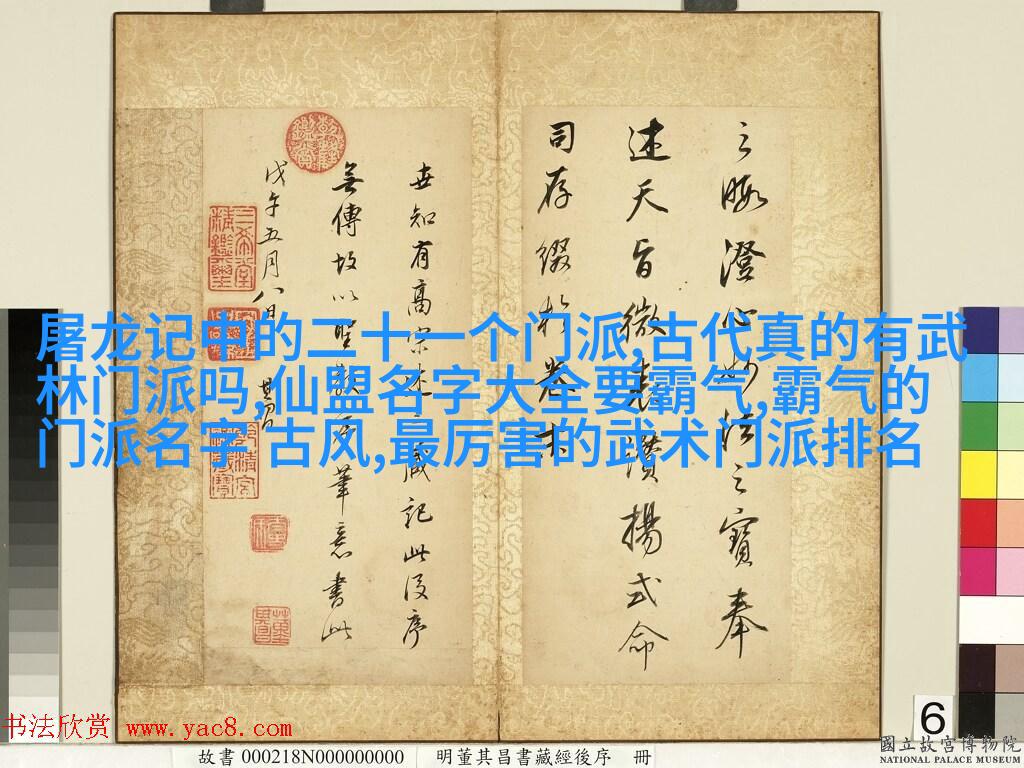 屠龙记中的二十一个门派,古代真的有武
林门派吗,仙盟名字大全要霸气,霸气的
门派名字 古风,最厉害的武术门派排名
之晦澄心妙法之寶奉
述天旨微表讚揚式命
司存綴於卷末
世知有高宗 藏記此後序
無傳故以聖教序筆意書此
戊午五月八日 其昌
三希堂精鑑璽
6
书法欣赏 www.yac8.com
故書 000218N000000000 明董其昌書藏經後序 冊
國立故宮博物院
NATIONAL PALACE MUSEUM